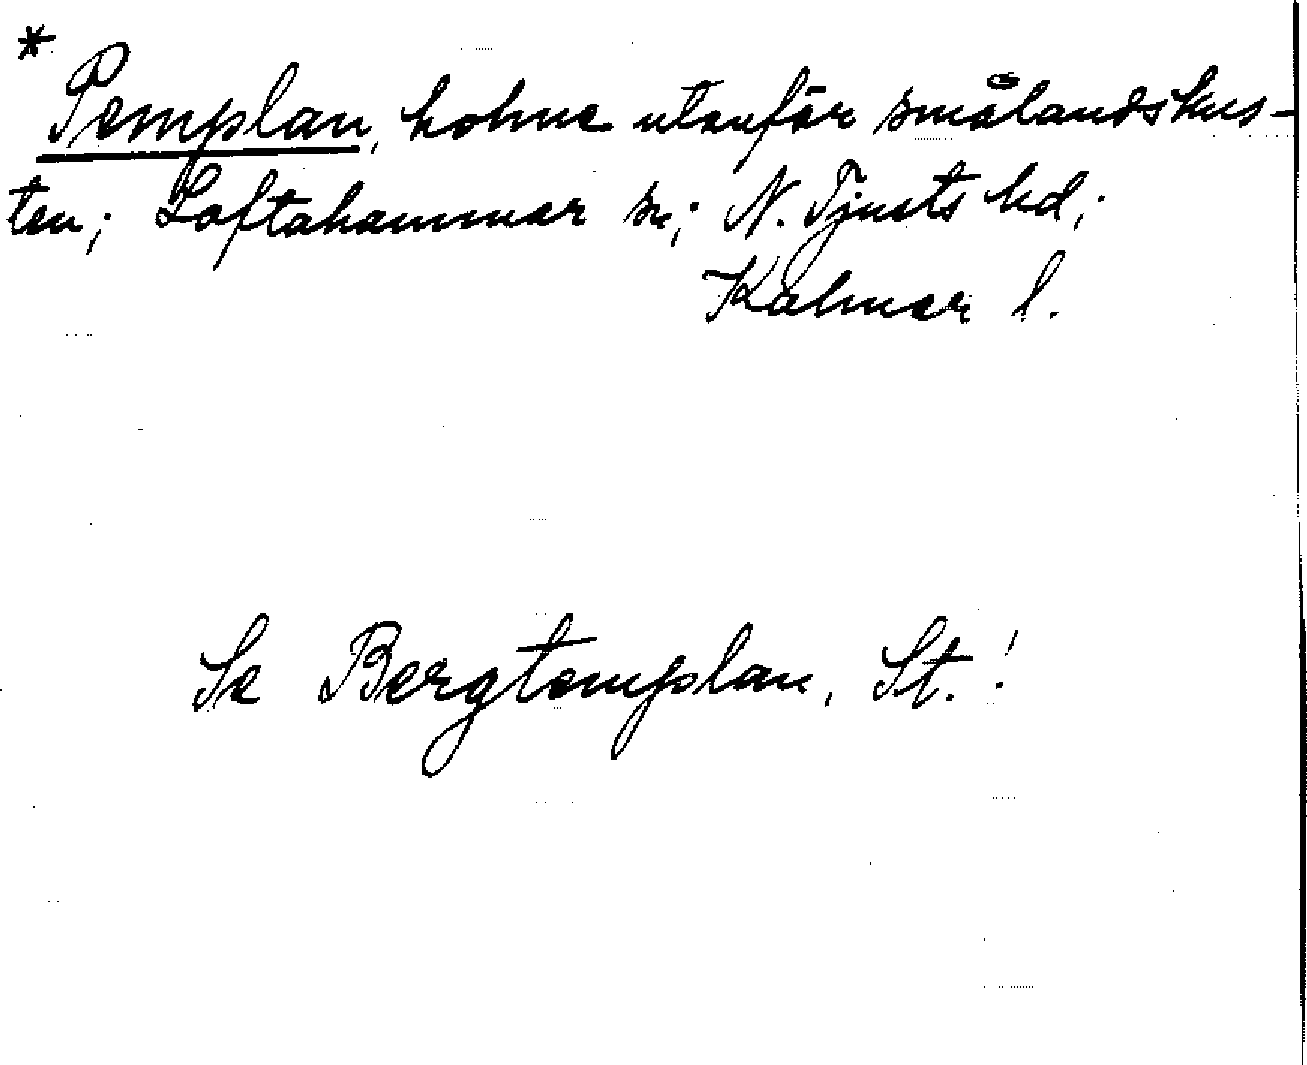 * Pemplan, holme utenför smålandskus-
ten; Loftahammar sn; N. Tjusts hd;
Kalmar l.
Se Bergtemplan, St.!